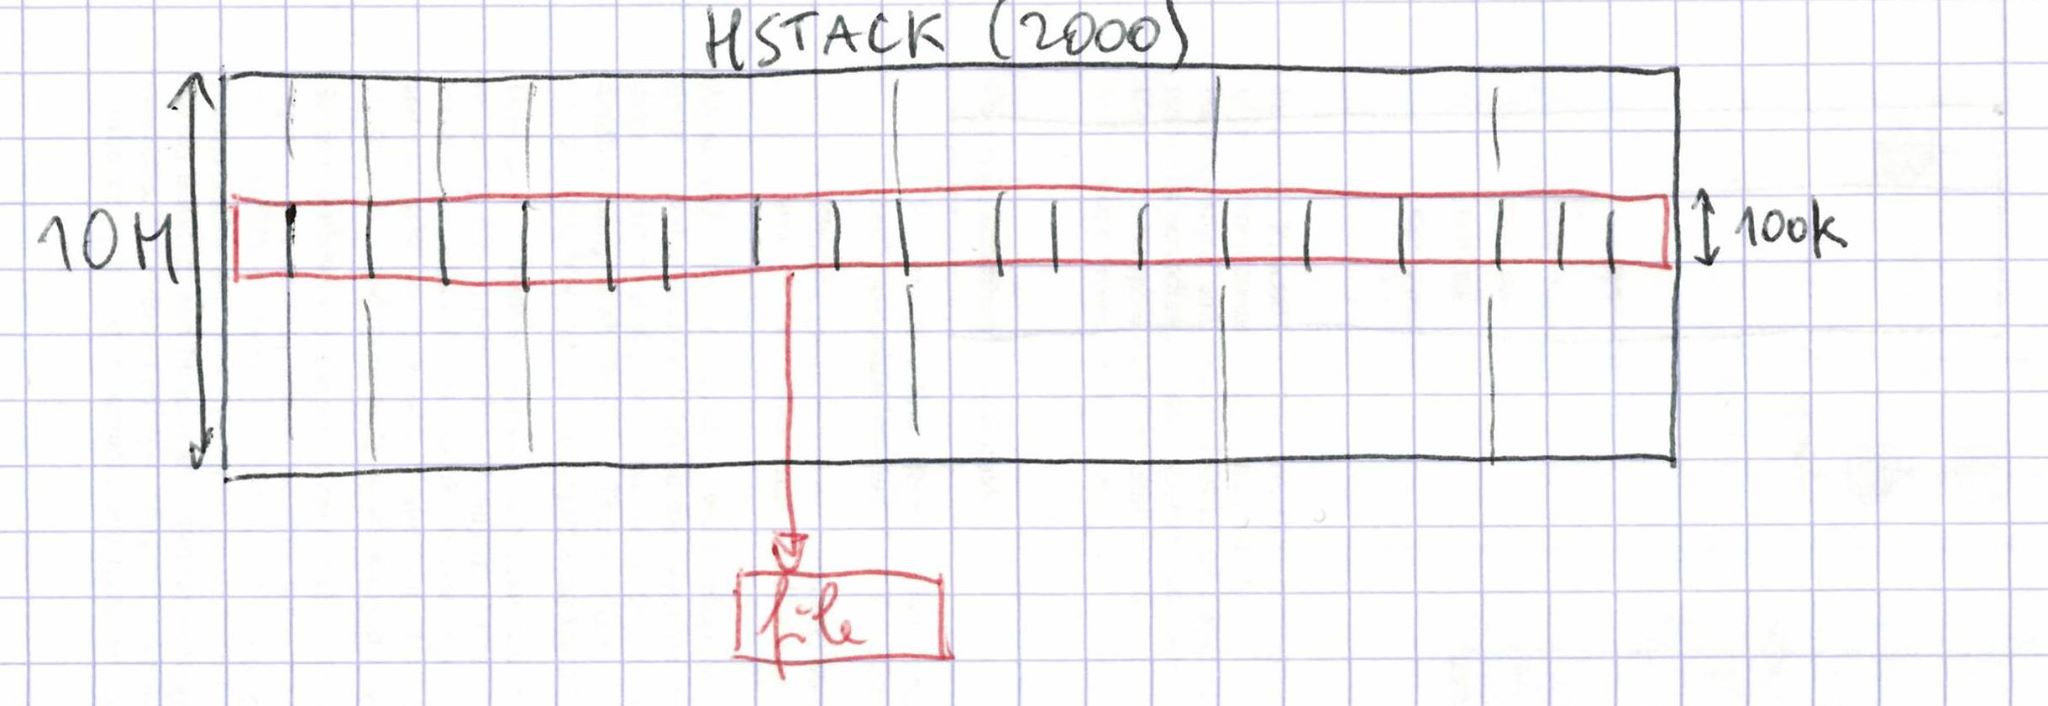 HSTACK (2000)
10M
100k
file